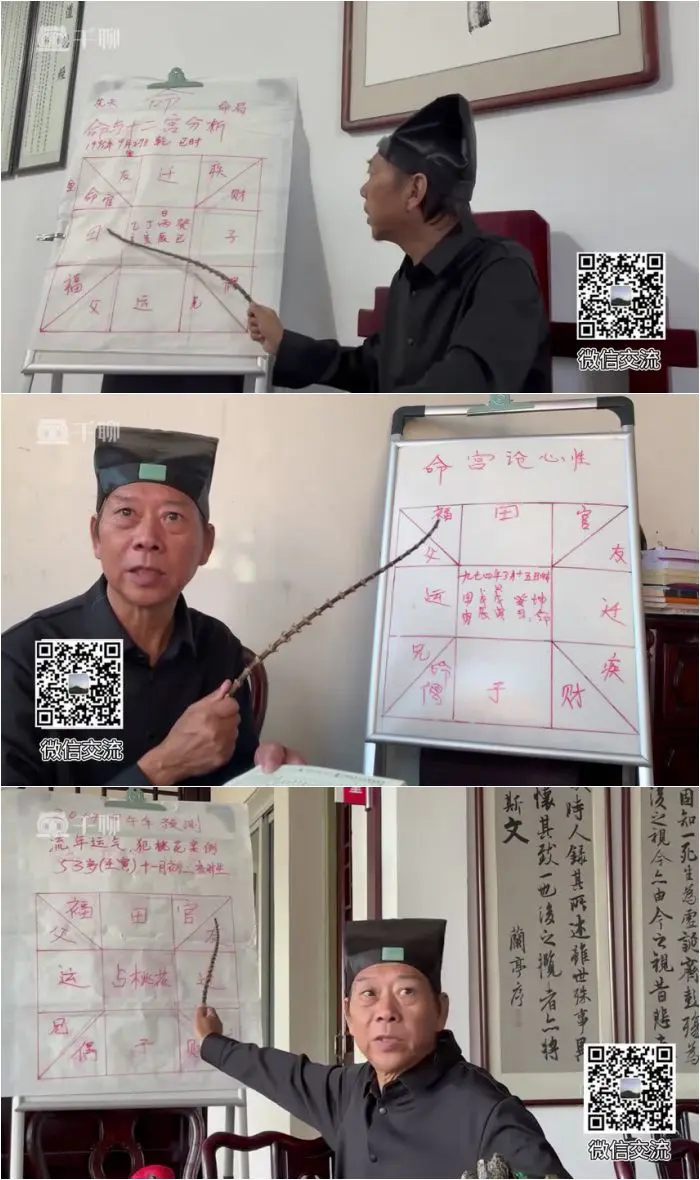 千聊
命局
命与十二宫分析
友 迁 疾
命 官 财
田 子
丁 丙 癸
亥 辰 巳
福 偶
父 运 兄
微信交流
千聊
命宫论心性
福 田 官
父 友
一九七四年3月十五日
运 迁
兄 疾
偶 子 财
微信交流
千聊
预测
流年运气，犯桃花案例
53岁(壬寅)十一月初二
福 田 官
父 友
运 占桃花
兄
偶 子 财
时人録其所述雖世殊事異
懷其致一也後之攬者亦將
斯文
蘭亭序
固知一死生為虛誕齊彭殤為
後之視今亦由今之視昔悲
微信交流